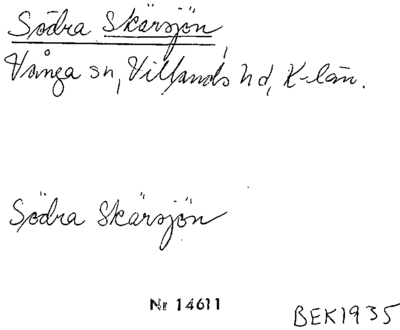 Södra Skärsjön,
Vånga sn, Villands hd, K-län.
Södra Skärsjön
Nr 14611
BEK1935